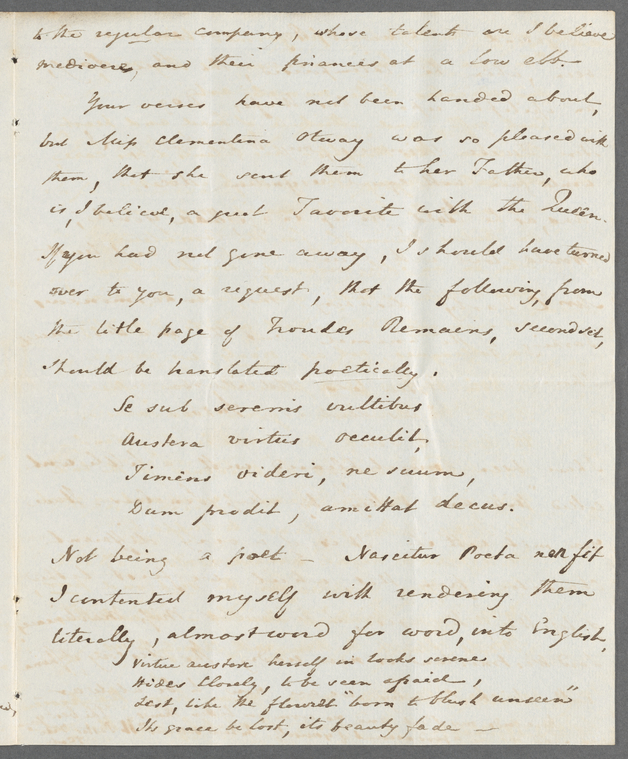 to the regular company, whose talents are I believe
mediocre, and their finances at a low ebb.
Your verses have not been handed about,
but Miss Clementina Otway was so pleased with
them, that she sent them to her Father, who
is, I believe, a great Favorite with the Queen.
If you had not gone away, I should have turned
over to you, a request, that the following, from
the title page of Froudes Remains, second set,
should be translated poetically.
Se sub serenis vultibus
Austera virtus occulit,
Timens videri, ne suum,
Dum prodit, amittat decus.
Not being a poet – Nascitur Poeta non fit
I contented myself with rendering them
literally, almost word for word, into English,
Virtue austere herself in looks serene
Hides closely, to be seen afraid,
Lest, like the flowret "born to blush unseen"
Its grace be lost, its beauty fade –